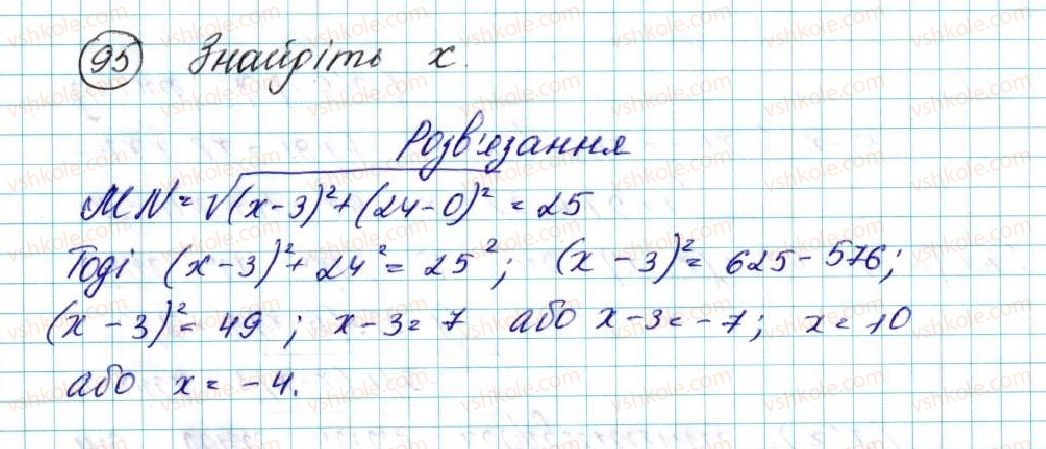 95 Знайдіть x.
Розв'язання
MN = √(x-3)²+(24-0)² = 25
Тоді (x-3)²+24² = 25²; (x-3)² = 625-576;
(x-3)² = 49; x-3=7 або x-3=-7; x=10
або x=-4.